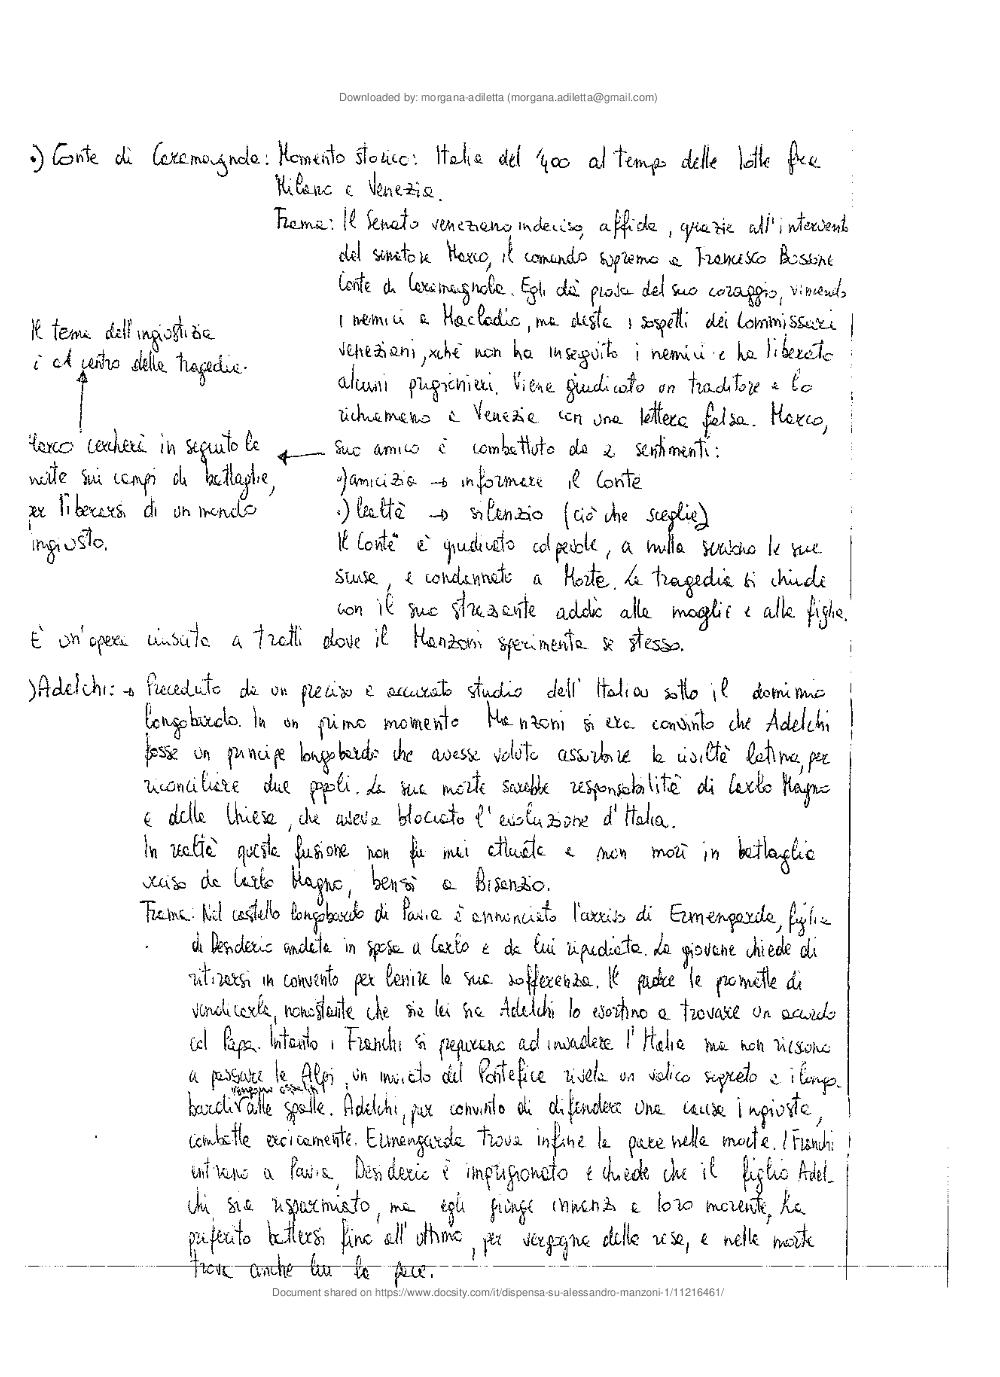 Downloaded by: morgana-adiletta (morgana.adiletta@gmail.com)
•) Conte di Caramagnola: Momento storico: Italia del '400 al tempo delle lotte fra
Milano e Venezia.
Trama: Il Senato veneziano, indeciso, affida, grazie all'intervento
del senatore Marco, il comando supremo a Francesco Bussone
Conte di Caramagnola. Egli dà prova del suo coraggio, vincendo
i nemici a Maclodio, ma desta i sospetti dei Commissari
veneziani, xchè non ha inseguito i nemici e ha liberato
alcuni prigionieri. Viene giudicato un traditore e lo
richiamano a Venezia con una lettera falsa. Marco,
suo amico è combattuto da 2 sentimenti:
•) amicizia → informare il Conte
•) lealtà → silenzio (ciò che sceglie)
Il Conte è giudicato colpevole, a nulla servono le sue
scuse, è condannato a Morte. La tragedia si chiude
con il suo straziante addio alla moglie e alla figlia.
Il tema dell'ingiustizia
è al centro della tragedia.
Marco cercherà in seguito la
morte sui campi di battaglia,
per liberarsi di un mondo
ingiusto.
È un'opera riuscita a tratti dove il Manzoni sperimenta se stesso.
)Adelchi: → Preceduto da un preciso e accurato studio dell'Italia sotto il dominio
longobardo. In un primo momento Manzoni si era convinto che Adelchi
fosse un principe longobardo che avesse voluto assorbire la civiltà latina, per
riconciliare due popoli. La sua morte sarebbe responsabilità di Carlo Magno
e della Chiesa, che aveva bloccato l'evoluzione d'Italia.
In realtà questa fusione non fu mai attuata e non morì in battaglia
ucciso da Carlo Magno, bensì a Bisanzio.
Trama: Nel castello longobardo di Pavia è annunciato l'arrivo di Ermengarda, figlia
di Desiderio andata in sposa a Carlo e da lui ripudiata. La giovane chiede di
ritirarsi in convento per lenire la sua sofferenza. Il padre le promette di
vendicarla, nonostante che sia lei sia Adelchi lo esortino a trovare un accordo
col Papa. Intanto i Franchi si preparano ad invadere l'Italia ma non riescono
a passare le Alpi, un inviato del Pontefice rivela un valico segreto e i longo-
bardi vengono assaliti alle spalle. Adelchi, pur convinto di difendere una causa ingiusta,
combatte eroicamente. Ermengarda trova infine la pace nella morte. I Franchi
entrano a Pavia, Desiderio è imprigionato e chiede che il figlio Adel-
chi sia risparmiato, ma egli giunge innanzi a loro morente, ha
preferito battersi fino all'ultimo, per vergogna della resa, e nella morte
trova anche lui la pace.
Document shared on https://www.docsity.com/it/dispensa-su-alessandro-manzoni-1/11216461/